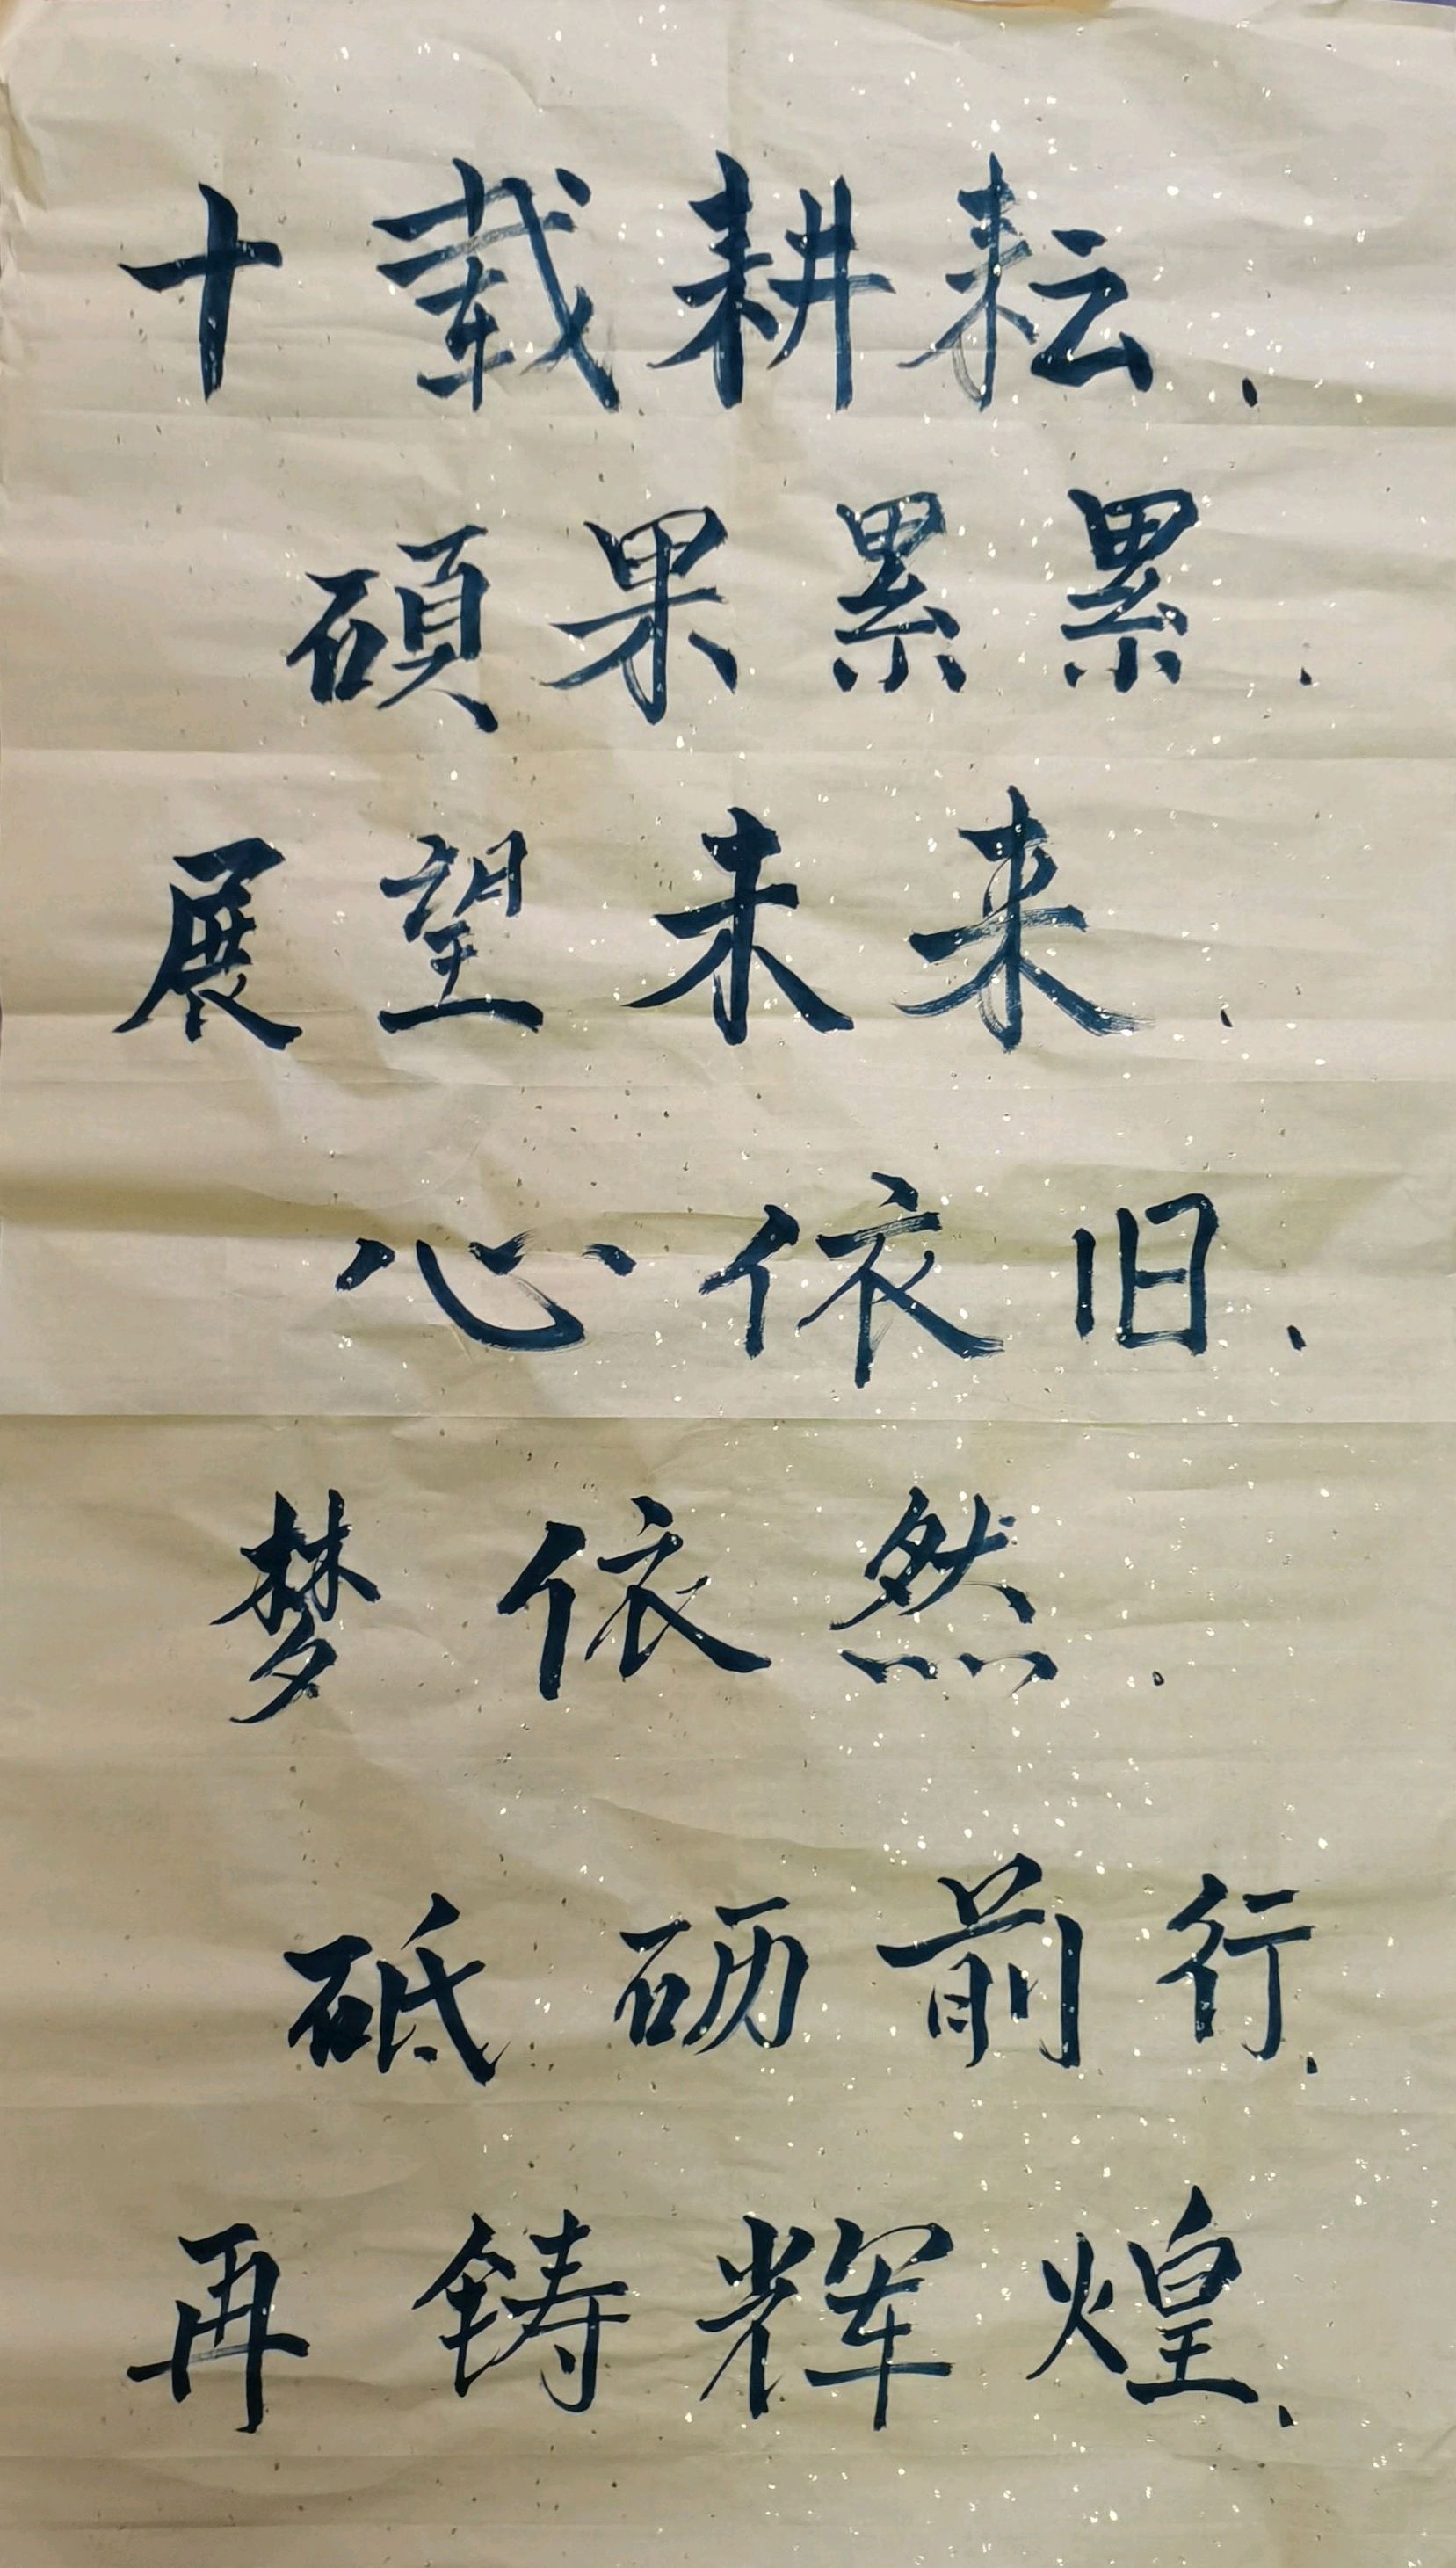 十载耕耘、
碩果累累.
展望未来、
心依旧、
梦依然.
砥砺前行、
再铸辉煌、